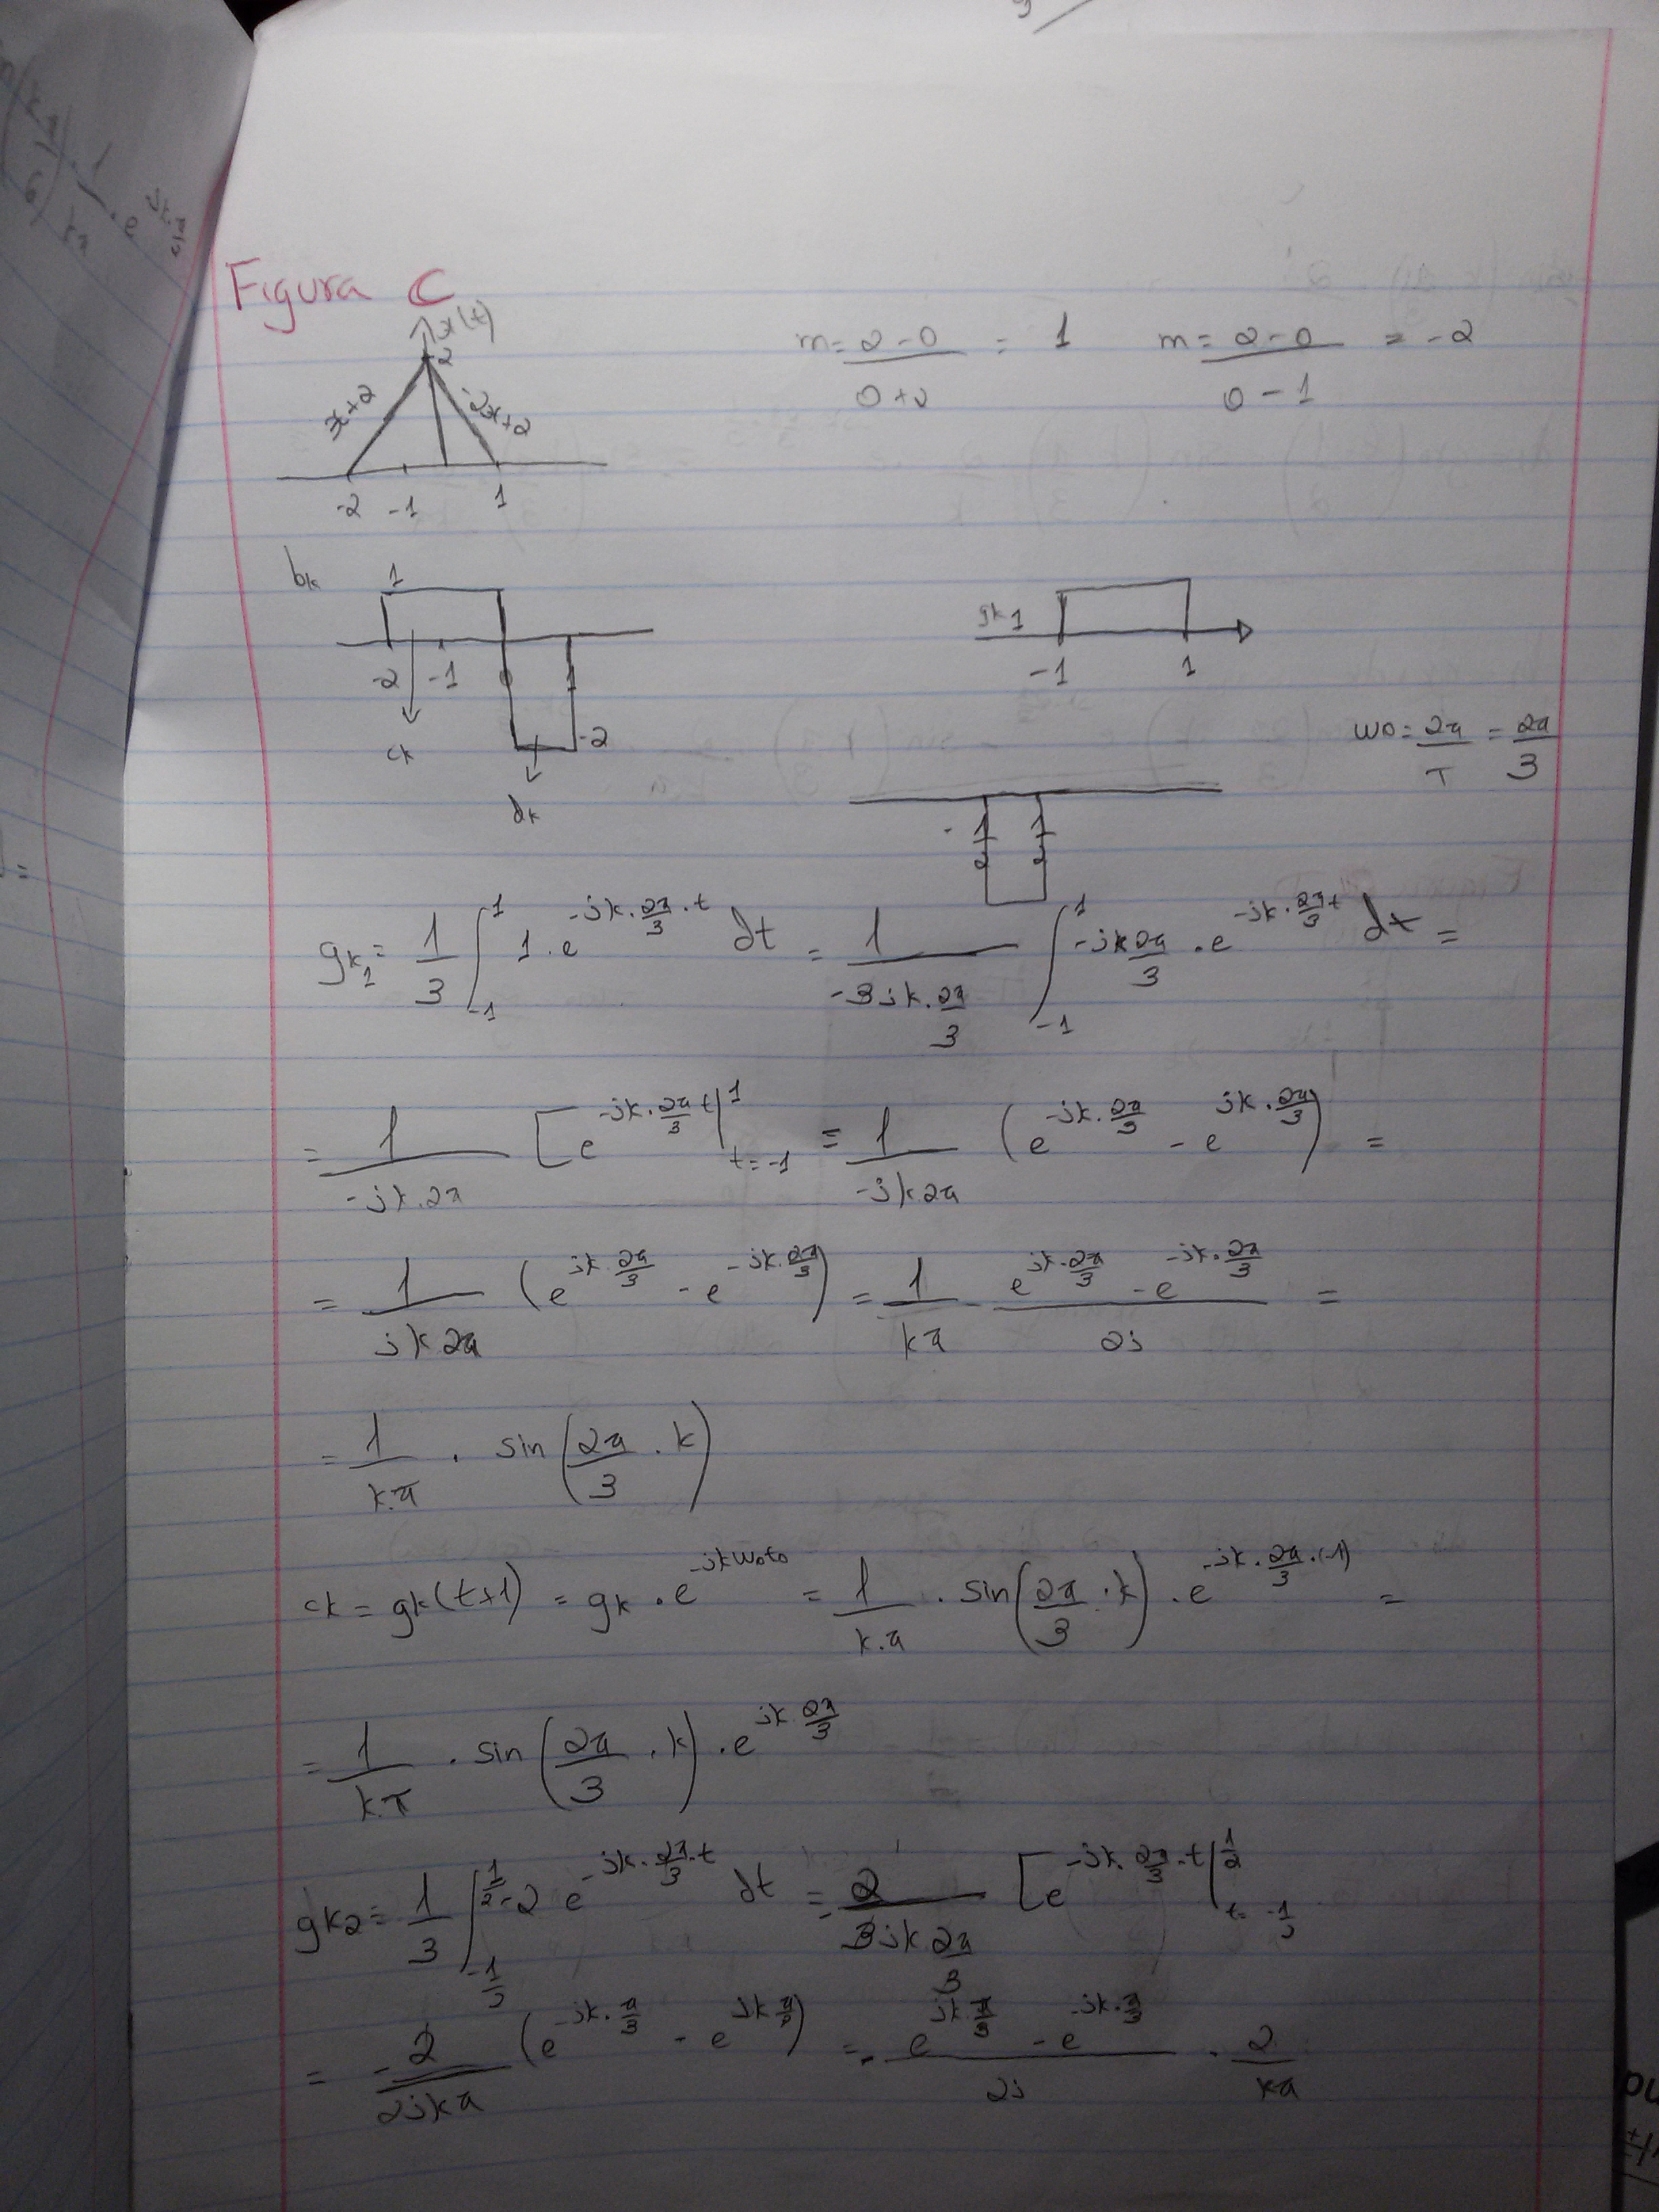 Figura C
x(t)
2
x+2
-2x+2
-2 -1 1
m = (2-0)/(0+2) = 1 m = (2-0)/(0-1) = -2
bk
1
-2 -1 0 1
-2
ck
dk
gk1
-1 1
w0 = 2π/T = 2π/3
gk1 = 1/3 ∫_{-1}^{1} 1·e^{-jk·2π/3·t} dt = 1/(-3jk·2π/3) ∫_{-1}^{1} -jk2π/3 · e^{-jk·2π/3 t} dt =
= 1/(-jk·2π) [e^{-jk·2π/3 t} |_{t=-1}^{1} = 1/(-jk2π) (e^{-jk·2π/3} - e^{jk·2π/3}) =
= 1/(jk2π) (e^{jk·2π/3} - e^{-jk·2π/3}) = 1/(kπ) · (e^{jk·2π/3} - e^{-jk·2π/3})/(2j) =
= 1/(k·π) · sin(2π/3 · k)
ck = gk(t+1) = gk · e^{-jkw0t0} = 1/(k·π) · sin(2π/3 · k) · e^{-jk·2π/3·(-1)} =
= 1/(k·π) · sin(2π/3 · k) · e^{jk·2π/3}
gk2 = 1/3 ∫_{-1/2}^{1/2} -2 e^{-jk·2π/3·t} dt = -2/(3jk 2π/3) [e^{-jk·2π/3·t} |_{t=-1/2}^{1/2}
= -2/(2jkπ) (e^{-jk·π/3} - e^{jk π/3}) = -(e^{jk·π/3} - e^{-jk·π/3})/(2j) · 2/(kπ)